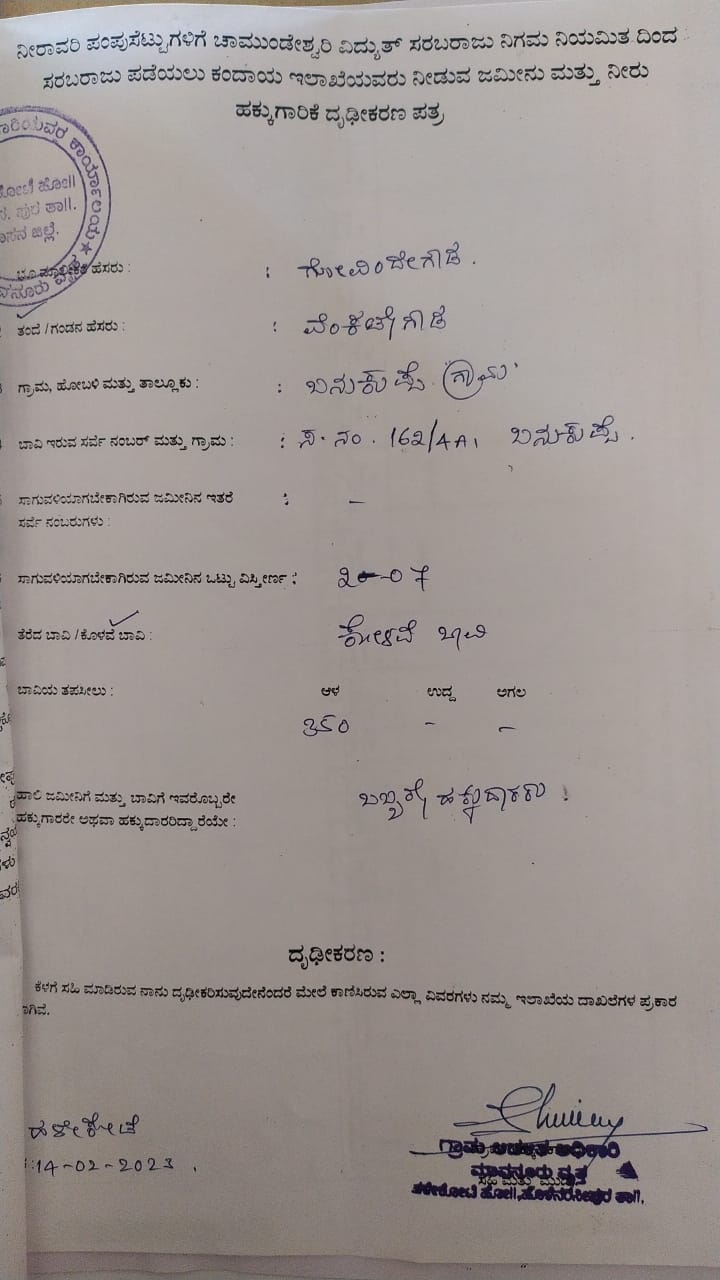 ನೀರಾವರಿ ಪಂಪುಸೆಟ್ಟುಗಳಿಗೆ ಚಾಮುಂಡೇಶ್ವರಿ ವಿದ್ಯುತ್ ಸರಬರಾಜು ನಿಗಮ ನಿಯಮಿತ ದಿಂದ
ಸರಬರಾಜು ಪಡೆಯಲು ಕಂದಾಯ ಇಲಾಖೆಯವರು ನೀಡುವ ಜಮೀನು ಮತ್ತು ನೀರು
ಹಕ್ಕುಗಾರಿಕೆ ದೃಢೀಕರಣ ಪತ್ರ
ಕಾರ್ಯಾಲಯ
ಕೋಟೆ ಹೋ॥
ಪುರ ತಾ॥.
ಸನ ಜಿಲ್ಲೆ.
ಭೂ ಮಾಲೀಕರ ಹೆಸರು : : ಗೋವಿಂದೇಗೌಡ .
ತಂದೆ / ಗಂಡನ ಹೆಸರು : : ವೆಂಕಟೇಗೌಡ
ಗ್ರಾಮ, ಹೋಬಳಿ ಮತ್ತು ತಾಲ್ಲೂಕು : : ಬನುಕುಪ್ಪೆ ಗ್ರಾಮ
ಬಾವಿ ಇರುವ ಸರ್ವೆ ನಂಬರ್ ಮತ್ತು ಗ್ರಾಮ : : ಸ. ನಂ . 162/4A, ಬನುಕುಪ್ಪೆ .
ಸಾಗುವಳಿಯಾಗಬೇಕಾಗಿರುವ ಜಮೀನಿನ ಇತರೆ : –
ಸರ್ವೆ ನಂಬರುಗಳು :
ಸಾಗುವಳಿಯಾಗಬೇಕಾಗಿರುವ ಜಮೀನಿನ ಒಟ್ಟು ವಿಸ್ತೀರ್ಣ : 2-07
ತೆರೆದ ಬಾವಿ / ಕೊಳವೆ ಬಾವಿ : ಕೊಳವೆ ಬಾವಿ
ಬಾವಿಯ ತಪಸೀಲು : ಆಳ ಉದ್ದ ಅಗಲ
350 - -
ಹಾಲಿ ಜಮೀನಿಗೆ ಮತ್ತು ಬಾವಿಗೆ ಇವರೊಬ್ಬರೇ ಒಬ್ಬರೇ ಹಕ್ಕುದಾರರು .
ಹಕ್ಕುಗಾರರೇ ಅಥವಾ ಹಕ್ಕುದಾರರಿದ್ದಾರೆಯೇ :
ದೃಢೀಕರಣ :
ಕೆಳಗೆ ಸಹಿ ಮಾಡಿರುವ ನಾನು ದೃಢೀಕರಿಸುವುದೇನೆಂದರೆ ಮೇಲೆ ಕಾಣಿಸಿರುವ ಎಲ್ಲಾ ವಿವರಗಳು ನಮ್ಮ ಇಲಾಖೆಯ ದಾಖಲೆಗಳ ಪ್ರಕಾರ
ಾಗಿವೆ.
ಹಳೇಕೋಟೆ
: 14-02-2023 .
ಗ್ರಾಮ ಆಡಳಿತ ಅಧಿಕಾರಿ
ಮಾವನೂರು ವೃತ್ತ
ಸಹಿ ಮತ್ತು ಮುದ್ರೆ
ಹಳೇಕೋಟೆ ಹೋ॥,ಹೊಳೆನರಸೀಪುರ ತಾ॥.